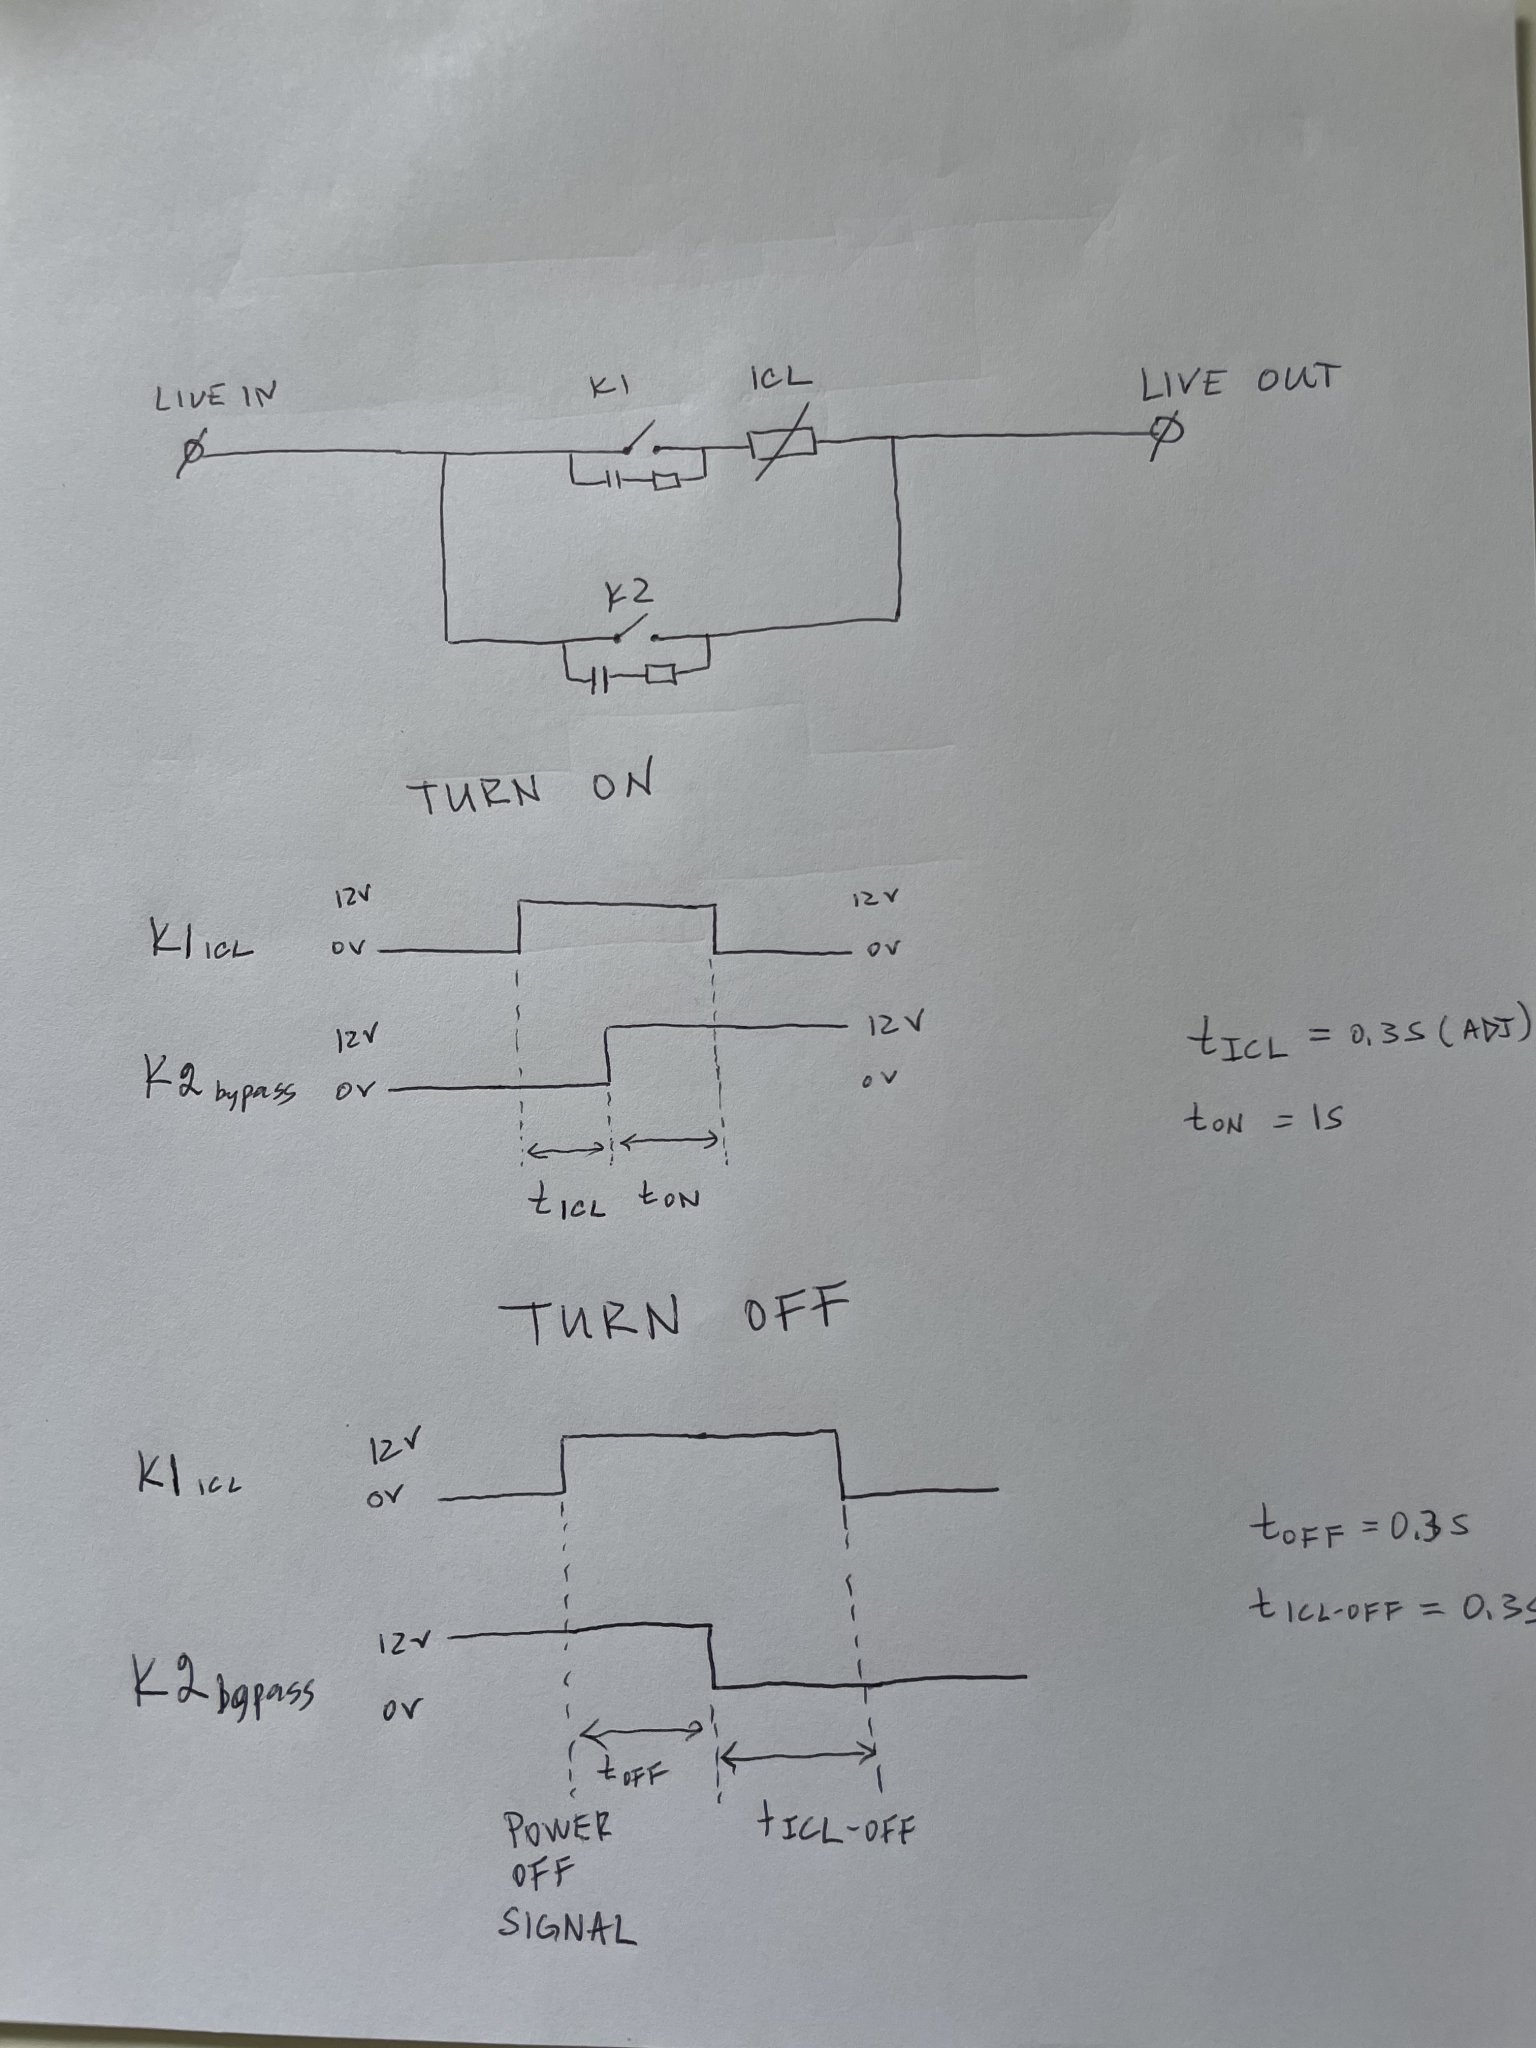 LIVE IN
K1
ICL
LIVE OUT
K2
TURN ON
12V
12V
K1 ICL
0V
0V
12V
12V
K2 bypass
0V
0V
tICL = 0.3S (ADJ)
tON = 1S
tICL
tON
TURN OFF
12V
K1 ICL
0V
tOFF = 0.3S
tICL-OFF = 0.3S
12V
K2 bypass
0V
tOFF
tICL-OFF
POWER
OFF
SIGNAL